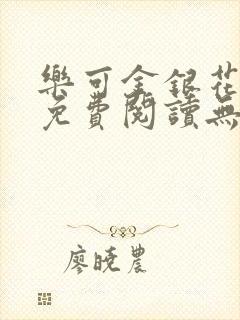 樂可金銀花
免費閱讀無
廖曉農